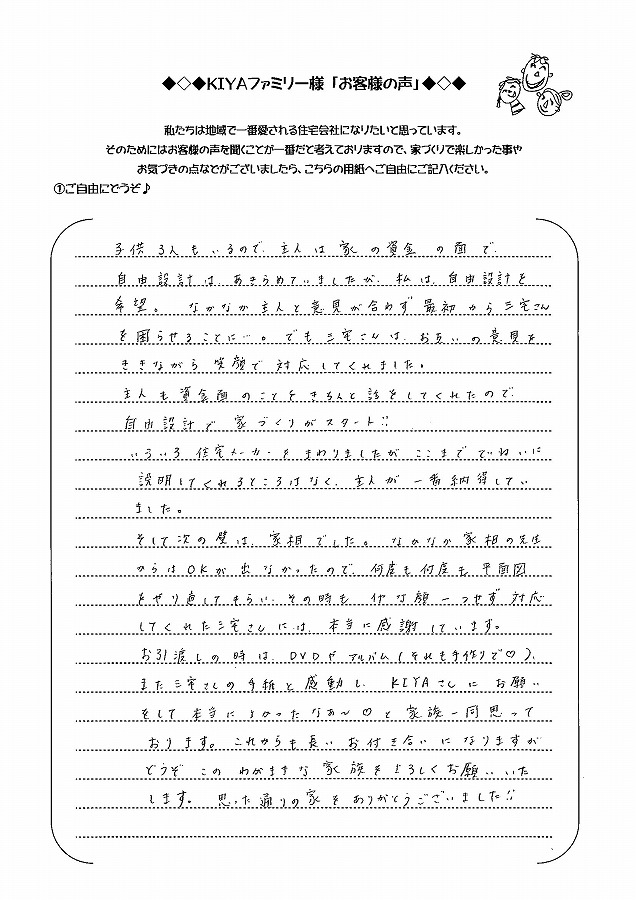 ◆◇◆KIYAファミリー様「お客様の声」◆◇◆
私たちは地域で一番愛される住宅会社になりたいと思っています。
そのためにはお客様の声を聞くことが一番だと考えておりますので、家づくりで楽しかった事や
お気づきの点などがございましたら、こちらの用紙へご自由にご記入ください。
①ご自由にどうぞ♪
子供3人もいるので、主人は家の資金の面で、
自由設計は、あきらめていましたが、私は、自由設計を
希望。なかなか主人と意見が合わず最初から三宅さん
を困らせることに…。でも三宅さんは、お互いの意見を
ききながら笑顔で対応してくれました。
主人も資金面のことをきちんと話をしてくれたので
自由設計で家づくりがスタート!!
いろいろ住宅メーカーをまわりましたがここまでていねいに
説明してくれるところはなく、主人が一番納得してい
ました。
そして次の壁は、家相でした。なかなか家相の先生
からはOKが出なかったので、何度も何度も平面図
をやり直してもらい、その時もイヤな顔一つせず対応
してくれた三宅さんには、本当に感謝しています。
お引渡しの時は、DVDやアルバム(それも手作りで♡)、
また三宅さんの手紙と感動し、KIYAさんにお願い
そして本当によかったなぁ~♡と家族一同思って
おります。これからも長いお付き合いになりますが
どうぞこのわがままな家族をよろしくお願いいた
します。思った通りの家をありがとうございました!!